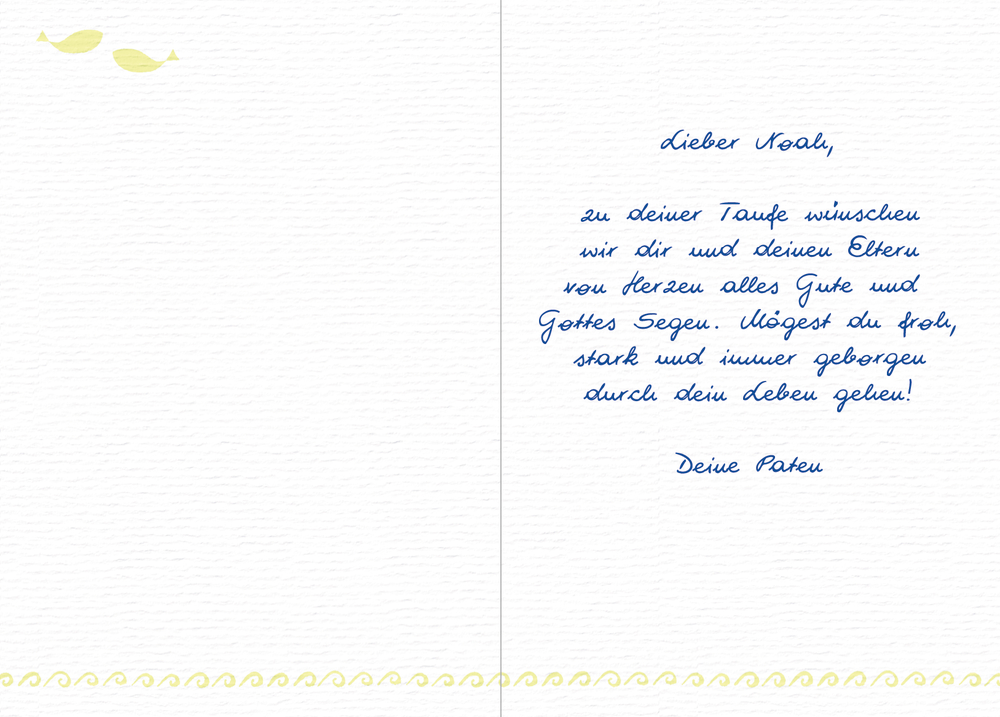 Lieber Noah,
zu deiner Taufe wünschen
wir dir und deinen Eltern
von Herzen alles Gute und
Gottes Segen. Mögest du froh,
stark und immer geborgen
durch dein Leben gehen!
Deine Paten